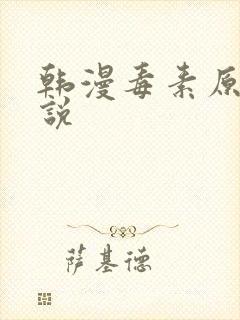 韩漫毒素原
說
萨基德